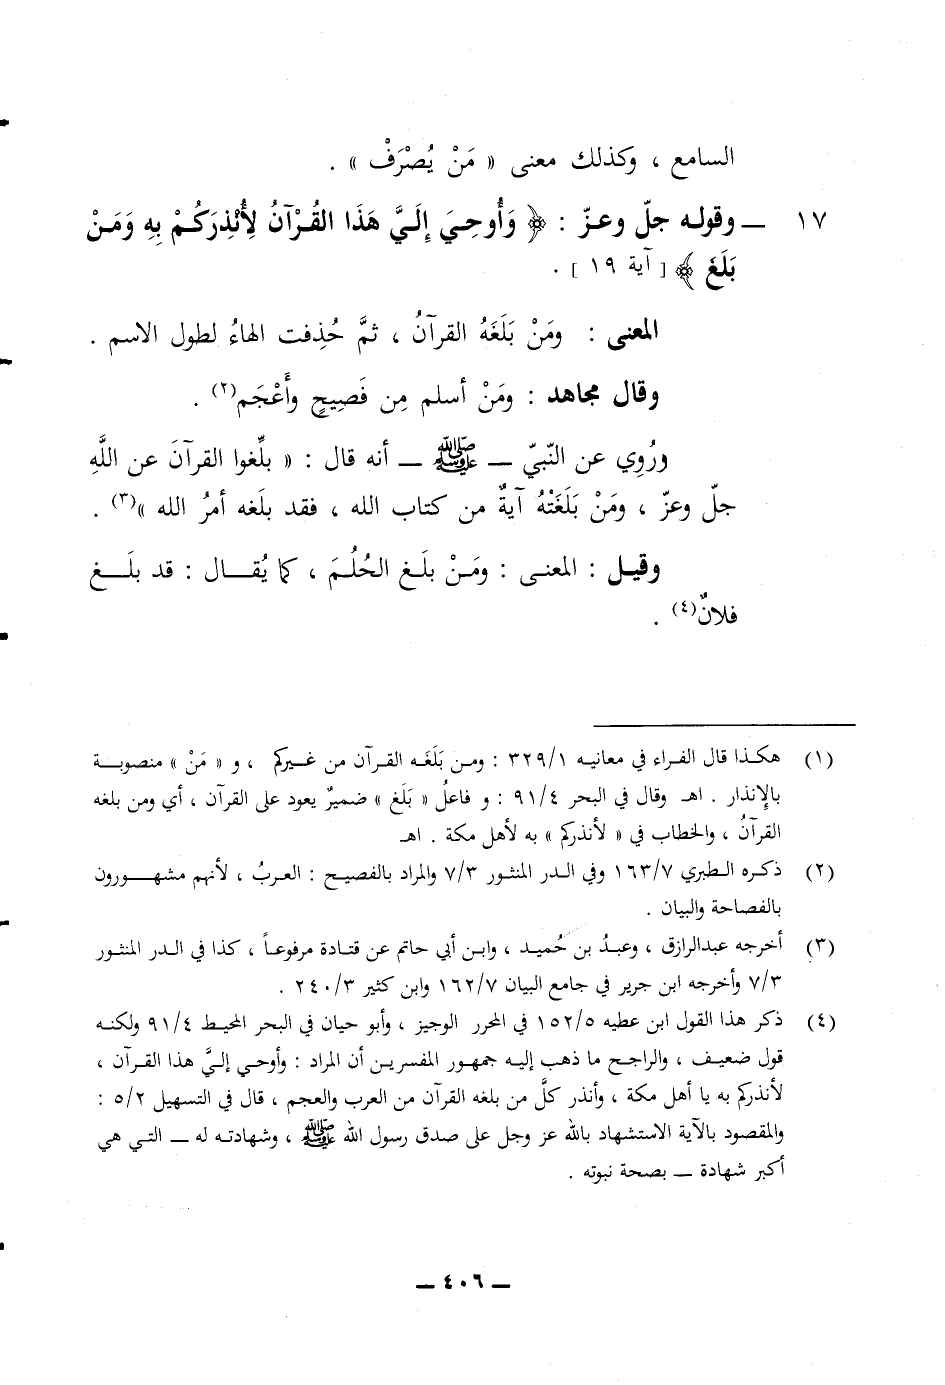 السامع ، وكذلك معنى « مَنْ يُصْرَفْ » .
١٧ ـ وقوله جلّ وعزّ : ﴿ وَأُوحِيَ إِلَيَّ هَذَا القُرْآنُ لِأُنْذِرَكُمْ بِهِ وَمَنْ
بَلَغَ ﴾ [ آية ١٩ ] .
المعنى : ومَنْ بَلَغَهُ القرآنُ ، ثمَّ حُذِفت الهاءُ لطول الاسم .
وقال مجاهد : ومَنْ أسلم مِن فَصِيحٍ وأَعْجَم(٢) .
ورُوِي عن النَّبيّ ـ ﷺ ـ أنه قال : « بلِّغوا القرآنَ عن اللَّهِ
جلّ وعزّ ، ومَنْ بَلَغَتْهُ آيةٌ من كتاب الله ، فقد بلَغه أمرُ الله »(٣) .
وقيـل : المعنـى : ومَـنْ بلَـغ الحُلُـمَ ، كما يُقـــال : قد بلَـــغ
فلانٌ(٤) .
(١) هكـذا قال الفـراء في معانيـه ٣٢٩/١ : ومـن بَلَغَـه القـرآن من غـيركم ، و « مَنْ » منصوبـة
بالإِنذار . اهـ وقال في البحر ٩١/٤ : و فاعلُ « بَلَغ » ضميرٌ يعود على القرآن ، أي ومن بلغه
القرآنُ ، والخطاب في « لأنذركم » به لأهل مكة . اهـ
(٢) ذكـره الطـبري ١٦٣/٧ وفي الـدر المنثـور ٧/٣ والمراد بالفصيـح : العـربُ ، لأنهم مشهـورون
بالفصاحة والبيان .
(٣) أخرجه عبدالرازق ، وعبدُ بن حُميـد ، وابـن أبي حاتم عن قتـادة مرفوعـاً ، كذا في الدر المنثـور
٧/٣ وأخرجه ابن جرير في جامع البيان ١٦٢/٧ وابن كثير ٢٤٠/٣ .
(٤) ذكر هذا القول ابن عطيه ١٥٢/٥ في المحرر الوجيز ، وأبو حيان في البحر المحيط ٩١/٤ ولكنـه
قول ضعيف ، والراجح ما ذهب إليـه جمهـور المفسريـن أن المراد : وأُوحـي إليَّ هذا القـرآن ،
لأنذركم به يا أهل مكة ، وأنذر كلَّ من بلغه القرآن من العرب والعجم ، قال في التسهيل ٥/٢ :
والمقصود بالآية الاستشهاد بالله عز وجل على صدق رسول الله ﷺ ، وشهادتـه له ـ التـي هي
أكبر شهادة ـ بصحة نبوته .
ـ ٤٠٦ ـ